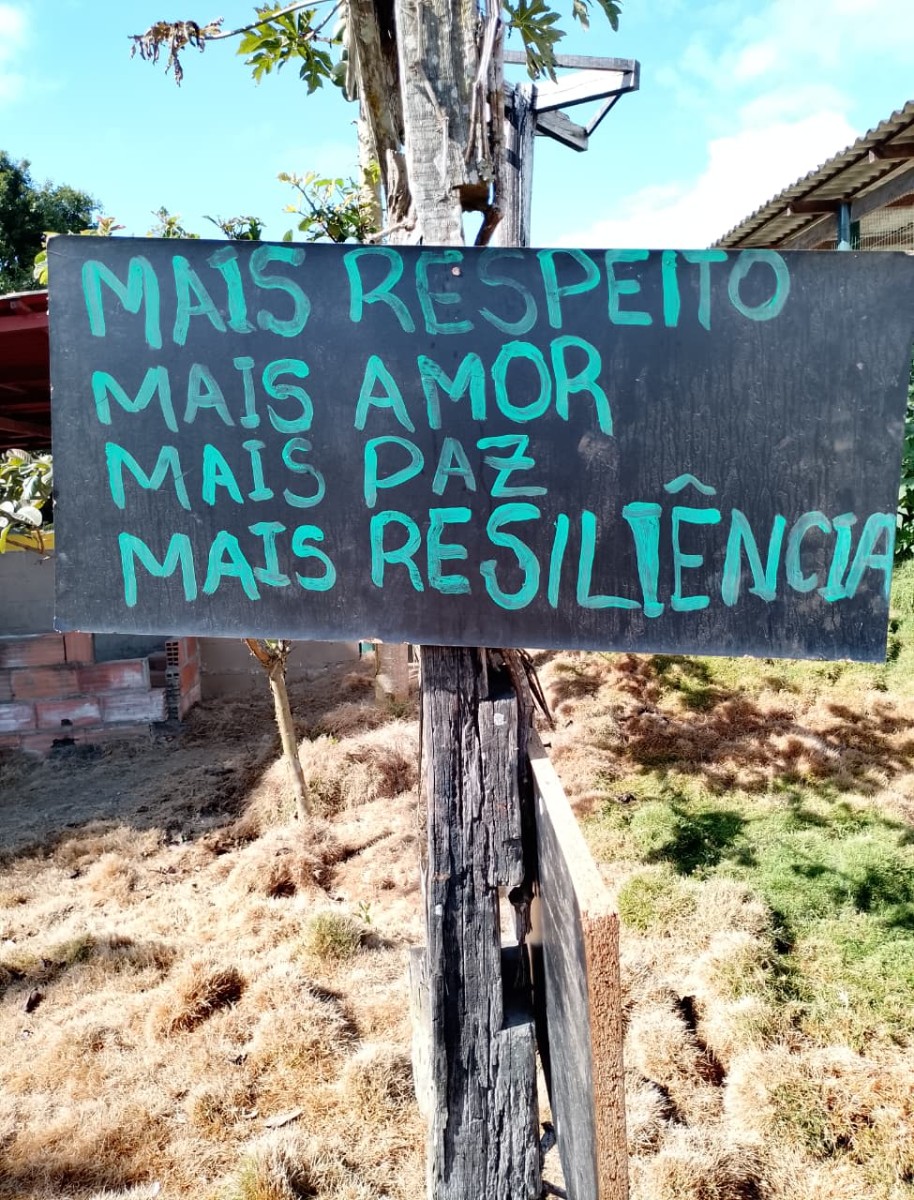 MAIS RESPEITO
MAIS AMOR
MAIS PAZ
MAIS RESILIÊNCIA